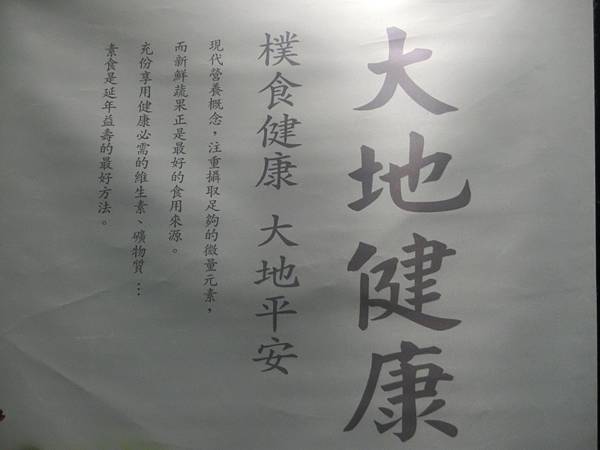 大地健康
樸食健康 大地平安
現代營養概念，注重攝取足夠的微量元素，
而新鮮蔬果正是最好的食用來源。
充份享用健康必需的維生素、礦物質…
素食是延年益壽的最好方法。